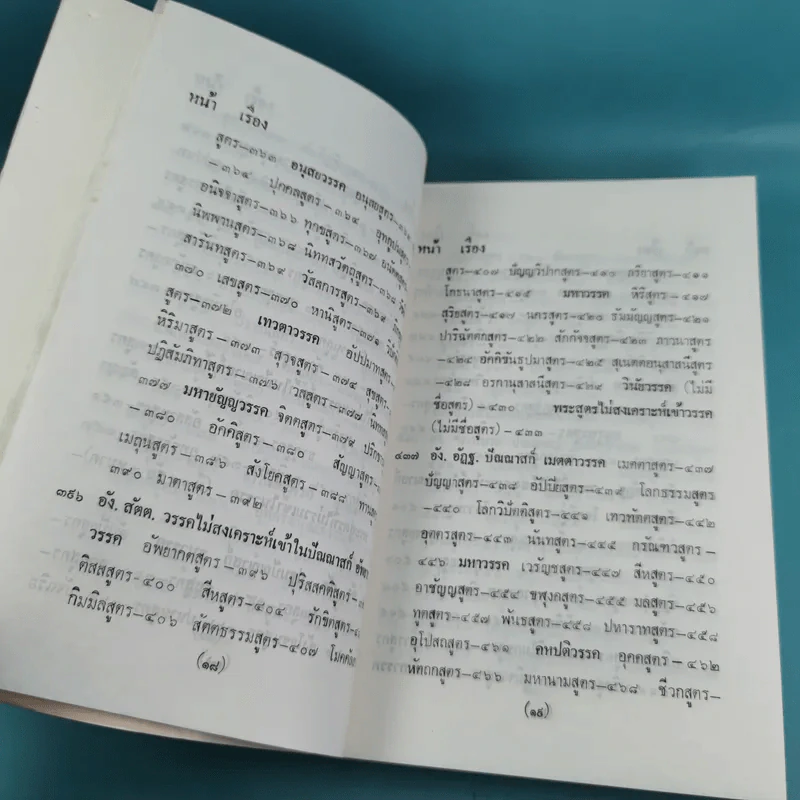 หน้า เรื่อง
สูตร–๓๖๓ อนุสยวรรค อนุสยสูตร–
–๓๖๔ ปุคคลสูตร–๓๖๔
อนิจจาสูตร–๓๖๖ ทุกขสูตร–๓๖๗
นิพพานสูตร–๓๖๘ นิททสวัตถุสูตร–๓๖๘
สารันทสูตร–๓๖๙ วัสสการสูตร–๓๖๙
๓๗๐ เสขสูตร–๓๗๐ หานิสูตร–๓๗๑
สูตร–๓๗๒ เทวตาวรรค อัปปมาทสูตร–
หิริมาสูตร–๓๗๓ สุวจสูตร–๓๗๔
ปฏิสัมภิทาสูตร–๓๗๖ วสสูตร–๓๗๗
๓๗๗ มหายัญญวรรค จิตตสูตร–๓๗๙
–๓๘๐ อัคคิสูตร–๓๘๐ สัญญาสูตร–
เมถุนสูตร–๓๘๖ สังโยคสูตร–๓๘๘
๓๙๐ มาตาสูตร–๓๙๒
๓๙๖ อัง. สัตต. วรรคไม่สงเคราะห์เข้าในปัณณาสก์
วรรค อัพยากตสูตร–๓๙๖ ปุริสสคติสูตร–
ติสสสูตร–๔๐๐ สีหสูตร–๔๐๔ รักขิตสูตร–
กิมมิลสูตร–๔๐๖ สัตตธรรมสูตร–๔๐๗
(๑๘)
หน้า เรื่อง
สูตร–๔๐๗ ปัญญวิปากสูตร–๔๑๐ ภริยาสูตร–๔๑๑
โกธนาสูตร–๔๑๕ มหาวรรค หิริสูตร–๔๑๗
สุริยสูตร–๔๑๗ นครสูตร–๔๒๐ ธัมมัญญูสูตร–๔๒๑
ปาริฉัตตกสูตร–๔๒๒ สักกัจจสูตร–๔๒๓ ภาวนาสูตร
–๔๒๔ อัคคิขันธูปมาสูตร–๔๒๕ สุเนตตอนุสาสนีสูตร
–๔๒๘ อรกานุสาสนีสูตร–๔๒๙ วินัยวรรค (ไม่มี
ชื่อสูตร)–๔๓๐ พระสูตรไม่สงเคราะห์เข้าวรรค
(ไม่มีชื่อสูตร)–๔๓๓
๔๓๗ อัง. อัฏฐ. ปัณณาสก์ เมตตาวรรค เมตตาสูตร–๔๓๗
ปัญญาสูตร–๔๓๘ อัปปิยสูตร–๔๓๙ โลกธรรมสูตร
–๔๔๐ โลกวิปัตติสูตร–๔๔๑ เทวทัตตสูตร–๔๔๒
อุตตรสูตร–๔๔๓ นันทสูตร–๔๔๕ กรัณฑวสูตร–
๔๔๖ มหาวรรค เวรัญชสูตร–๔๔๗ สีหสูตร–๔๕๐
อาชัญญสูตร–๔๕๔ ขฬุงคสูตร–๔๕๕ มลสูตร–๔๕๖
ทูตสูตร–๔๕๗ พันธสูตร–๔๕๘ ปหาราทสูตร–๔๕๘
อุโปสถสูตร–๔๖๑ คหปติวรรค อุคคสูตร–๔๖๒
หัตถกสูตร–๔๖๖ มหานามสูตร–๔๖๘ ชีวกสูตร–
(๑๙)